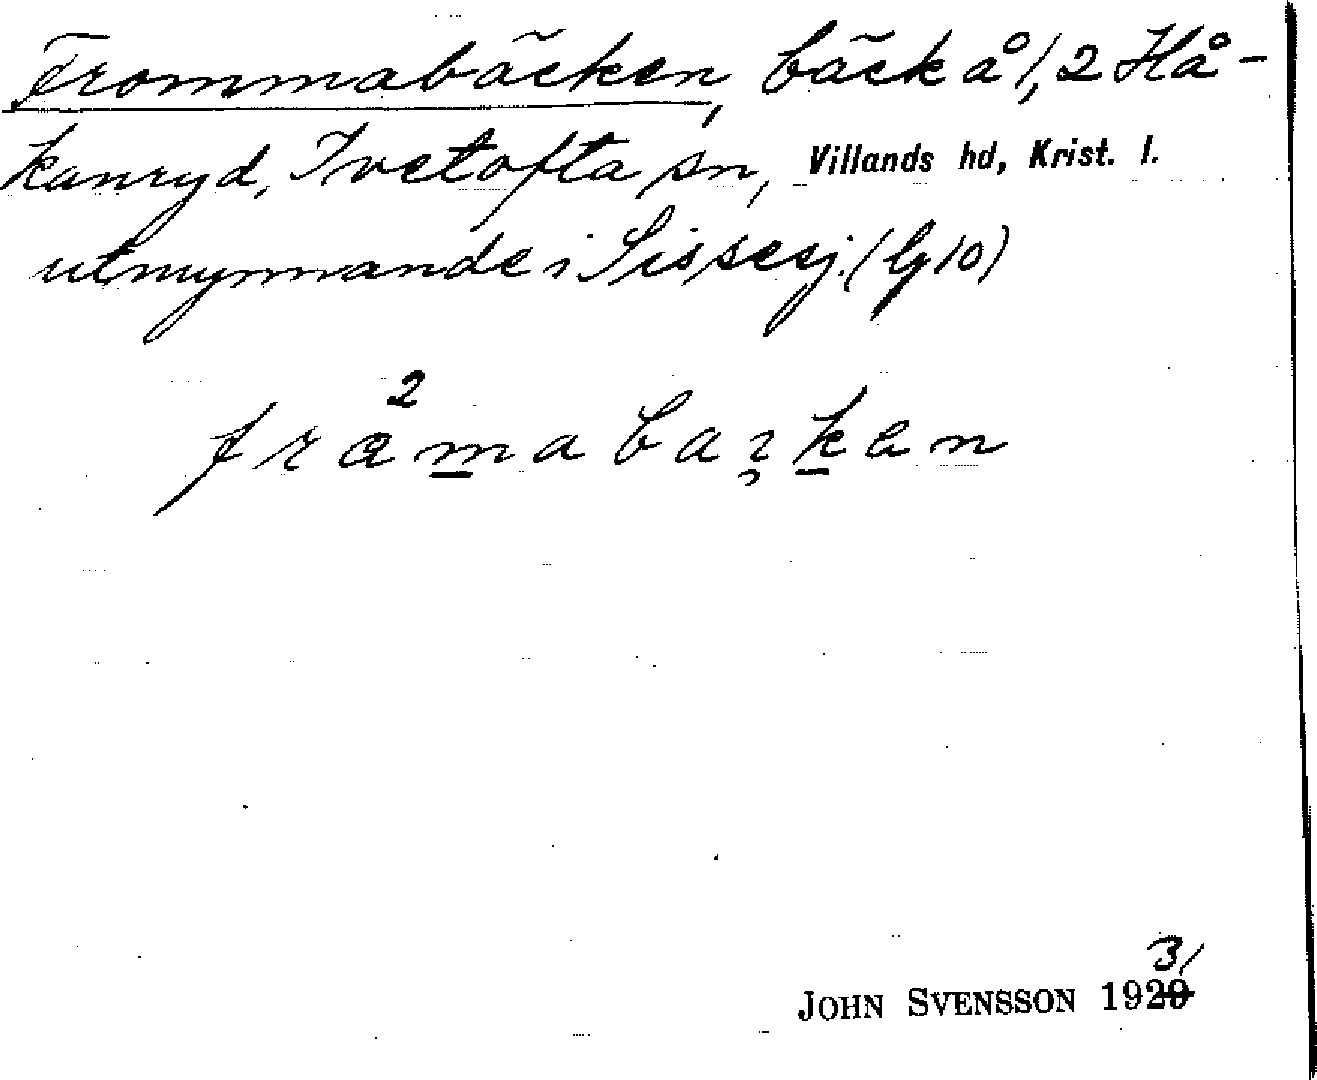 Frommabäcken, bäck å 1/2 Hå-
kanryd, Ivetofta sn, Villands hd, Krist. l.
utmynnande i Sissesj. (lg 10)
2
framabaɪken
31
JOHN SVENSSON 1920